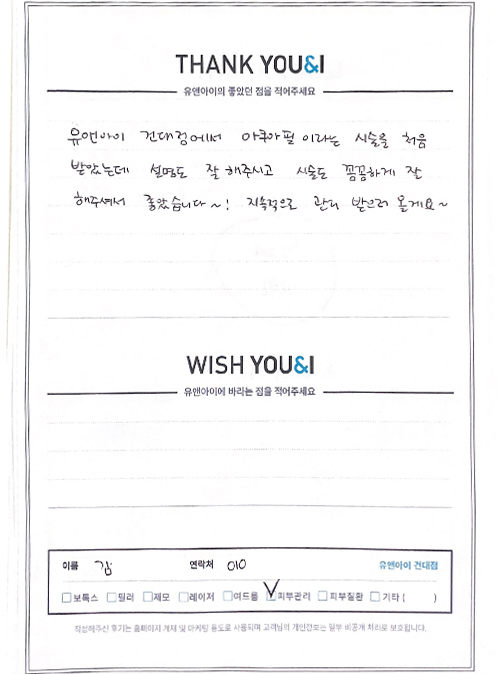 THANK YOU&I
유앤아이의 좋았던 점을 적어주세요
유앤아이 건대점에서 아쿠아필 이라는 시술을 처음
받았는데 설명도 잘 해주시고 시술도 꼼꼼하게 잘
해주셔서 좋았습니다~! 지속적으로 관리 받으러 올게요~
WISH YOU&I
유앤아이에 바라는 점을 적어주세요
이름 김 연락처 010 유앤아이 건대점
보톡스 필러 제모 레이저 여드름 피부관리 피부질환 기타 ( )
작성해주신 후기는 홈페이지 게재 및 마케팅 용도로 사용되며 고객님의 개인정보는 일부 비공개 처리로 보호됩니다.